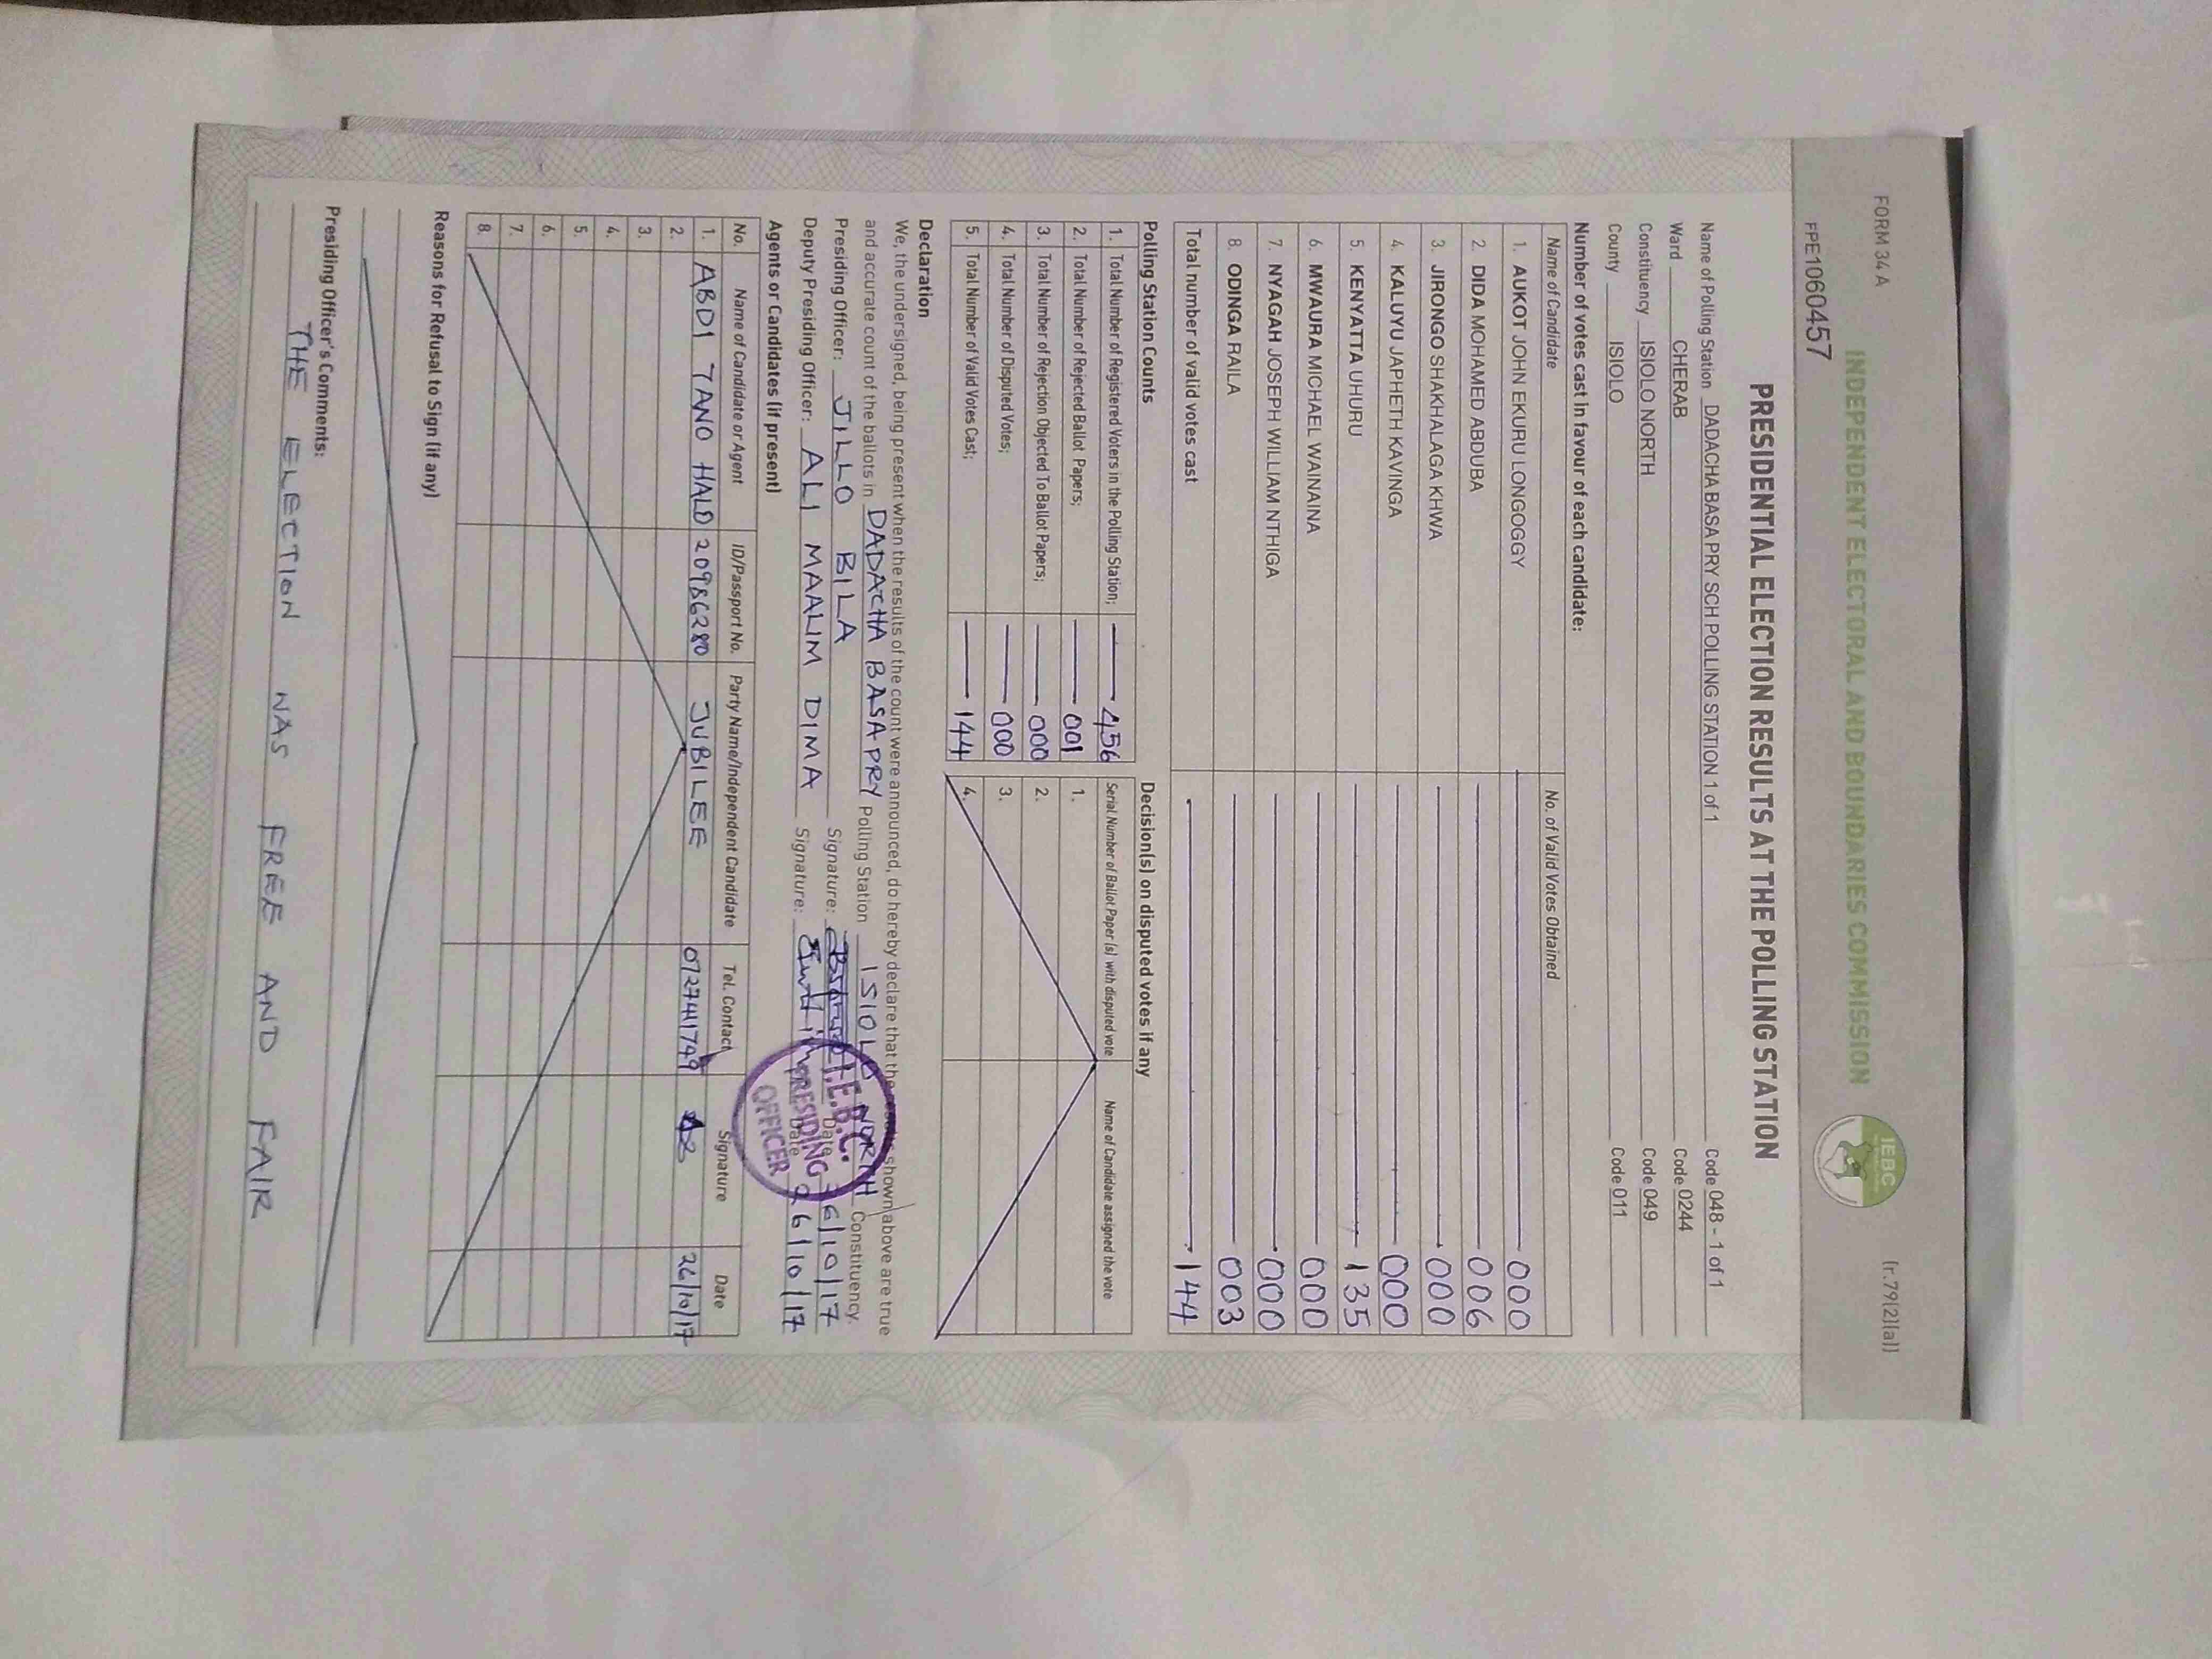 FORM 34 A
(r.79(2)(a))
INDEPENDENT ELECTORAL AND BOUNDARIES COMMISSION
IEBC
FPE1060457
PRESIDENTIAL ELECTION RESULTS AT THE POLLING STATION
Name of Polling Station DADACHA BASA PRY SCH POLLING STATION 1 of 1 Code 048 - 1 of 1
Ward CHERAB Code 0244
Constituency ISIOLO NORTH Code 049
County ISIOLO Code 011
Number of votes cast in favour of each candidate:
Name of Candidate No. of Valid Votes Obtained
1. AUKOT JOHN EKURU LONGOGGY 000
2. DIDA MOHAMED ABDUBA 006
3. JIRONGO SHAKHALAGA KHWA 000
4. KALUYU JAPHETH KAVINGA 000
5. KENYATTA UHURU 135
6. MWAURA MICHAEL WAINAINA 000
7. NYAGAH JOSEPH WILLIAM NTHIGA 000
8. ODINGA RAILA 003
Total number of valid votes cast 144
Polling Station Counts
1. Total Number of Registered Voters in the Polling Station; 456
2. Total Number of Rejected Ballot Papers; 001
3. Total Number of Rejection Objected To Ballot Papers; 000
4. Total Number of Disputed Votes; 000
5. Total Number of Valid Votes Cast; 144
Decision(s) on disputed votes if any
Serial Number of Ballot Paper (s) with disputed vote Name of Candidate assigned the vote
1.
2.
3.
4.
Declaration
We, the undersigned, being present when the results of the count were announced, do hereby declare that the shown above are true
and accurate count of the ballots in DADACHA BASA PRY Polling Station ISIOLO NORTH Constituency.
Presiding Officer: JILLO BILA Signature: Date 26/10/17
Deputy Presiding Officer: ALI MAALIM DIMA Signature: Date 26/10/17
I.E.B.C.
PRESIDING
OFFICER
Agents or Candidates (if present)
No. Name of Candidate or Agent ID/Passport No. Party Name/Independent Candidate Tel. Contact Signature Date
1. ABDI TANO HALO 20986280 JUBILEE 0727411749 26/10/17
2.
3.
4.
5.
6.
7.
8.
Reasons for Refusal to Sign (if any)
Presiding Officer's Comments:
THE ELECTION WAS FREE AND FAIR